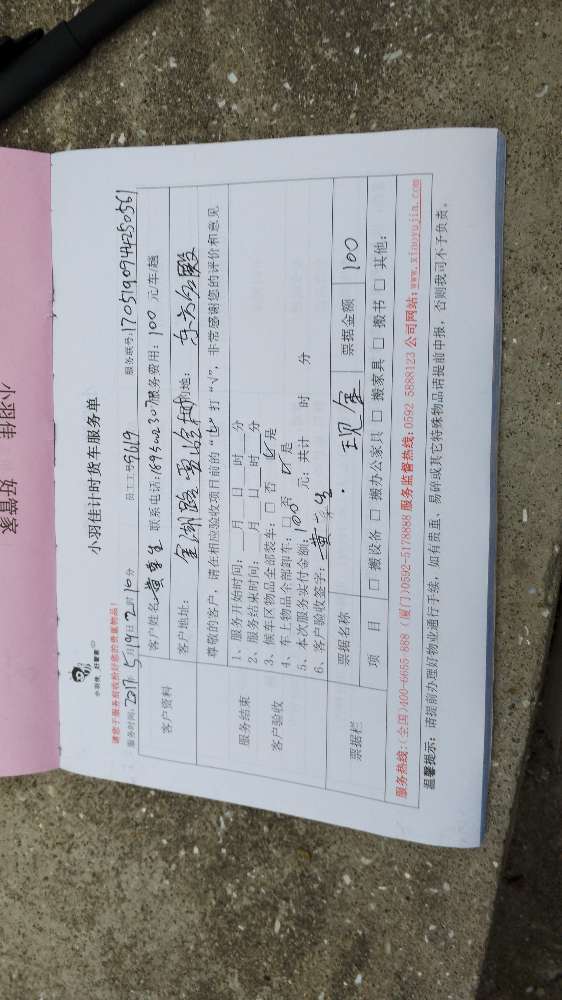 小羽佳
好管家
小羽佳 好管家
小羽佳计时货车服务单
请您于服务前收拾好您的贵重物品!
服务时间: 2017 5月19日 时10分 员工工号: 5619 服务联号: 170519094425056
客户资料 客户姓名 黄先生 联系电话: 307 服务费用: 100 元/车/趟
客户地址: 金湖路 地: 东方名殿
尊敬的客户,请在相应验收项目前的“□”打“√”,非常感谢您的评价和意见
服务结束
客户验收
1、服务开始时间: 月 日 时 分
2、服务结束时间: 月 日 时 分
3、候车区物品全部装车: □ 否 ☑ 是
4、车上物品全部卸车: □ 否 ☑ 是
5、本次服务实付金额: 100 元; 共计 时 分
6、客户验收签字: 黄先生
票据栏 票据名称 现金 票据金额 100
项 目 □ 搬设备 □ 搬办公家具 □ 搬家具 □ 搬书 □ 其他:
服务热线:(全国)400-6655-888 (厦门)0592-5178888 服务监督热线:0592-5888123 公司网站:www.xiaoyujia.com
温馨提示: 请提前办理好物业通行手续, 如有贵重、易碎或其它特殊物品请提前申报, 否则我司不予负责。